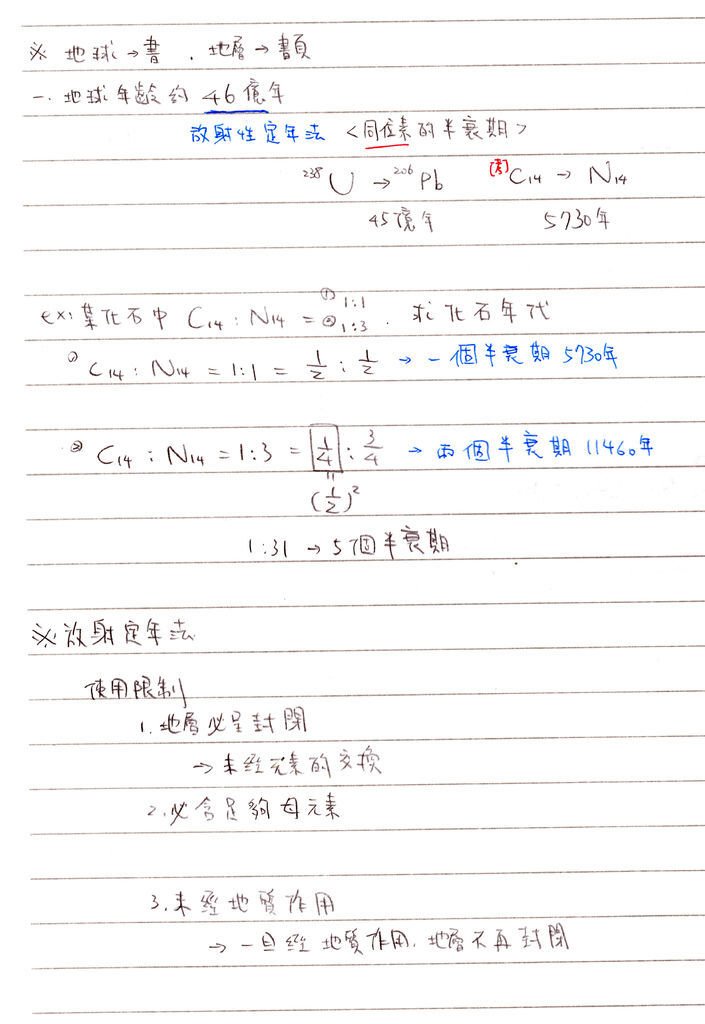 ※ 地球→書 . 地層→書頁
一. 地球年齡約 46億年
放射性定年法 <同位素的半衰期>
²³⁸U → ²⁰⁶Pb [考] C₁₄ → N₁₄
45億年 5730年
ex: 某化石中 C₁₄ : N₁₄ = ① 1:1 ② 1:3 . 求化石年代
① C₁₄ : N₁₄ = 1:1 = 1/2 : 1/2 → 一個半衰期 5730年
② C₁₄ : N₁₄ = 1:3 = 1/4 : 3/4 → 兩個半衰期 11460年
= (1/2)²
1:31 → 5個半衰期
※放射定年法
使用限制
1. 地層必呈封閉
→ 未經元素的交換
2. 必含足夠母元素
3. 未經地質作用
→ 一旦經地質作用. 地層不再封閉